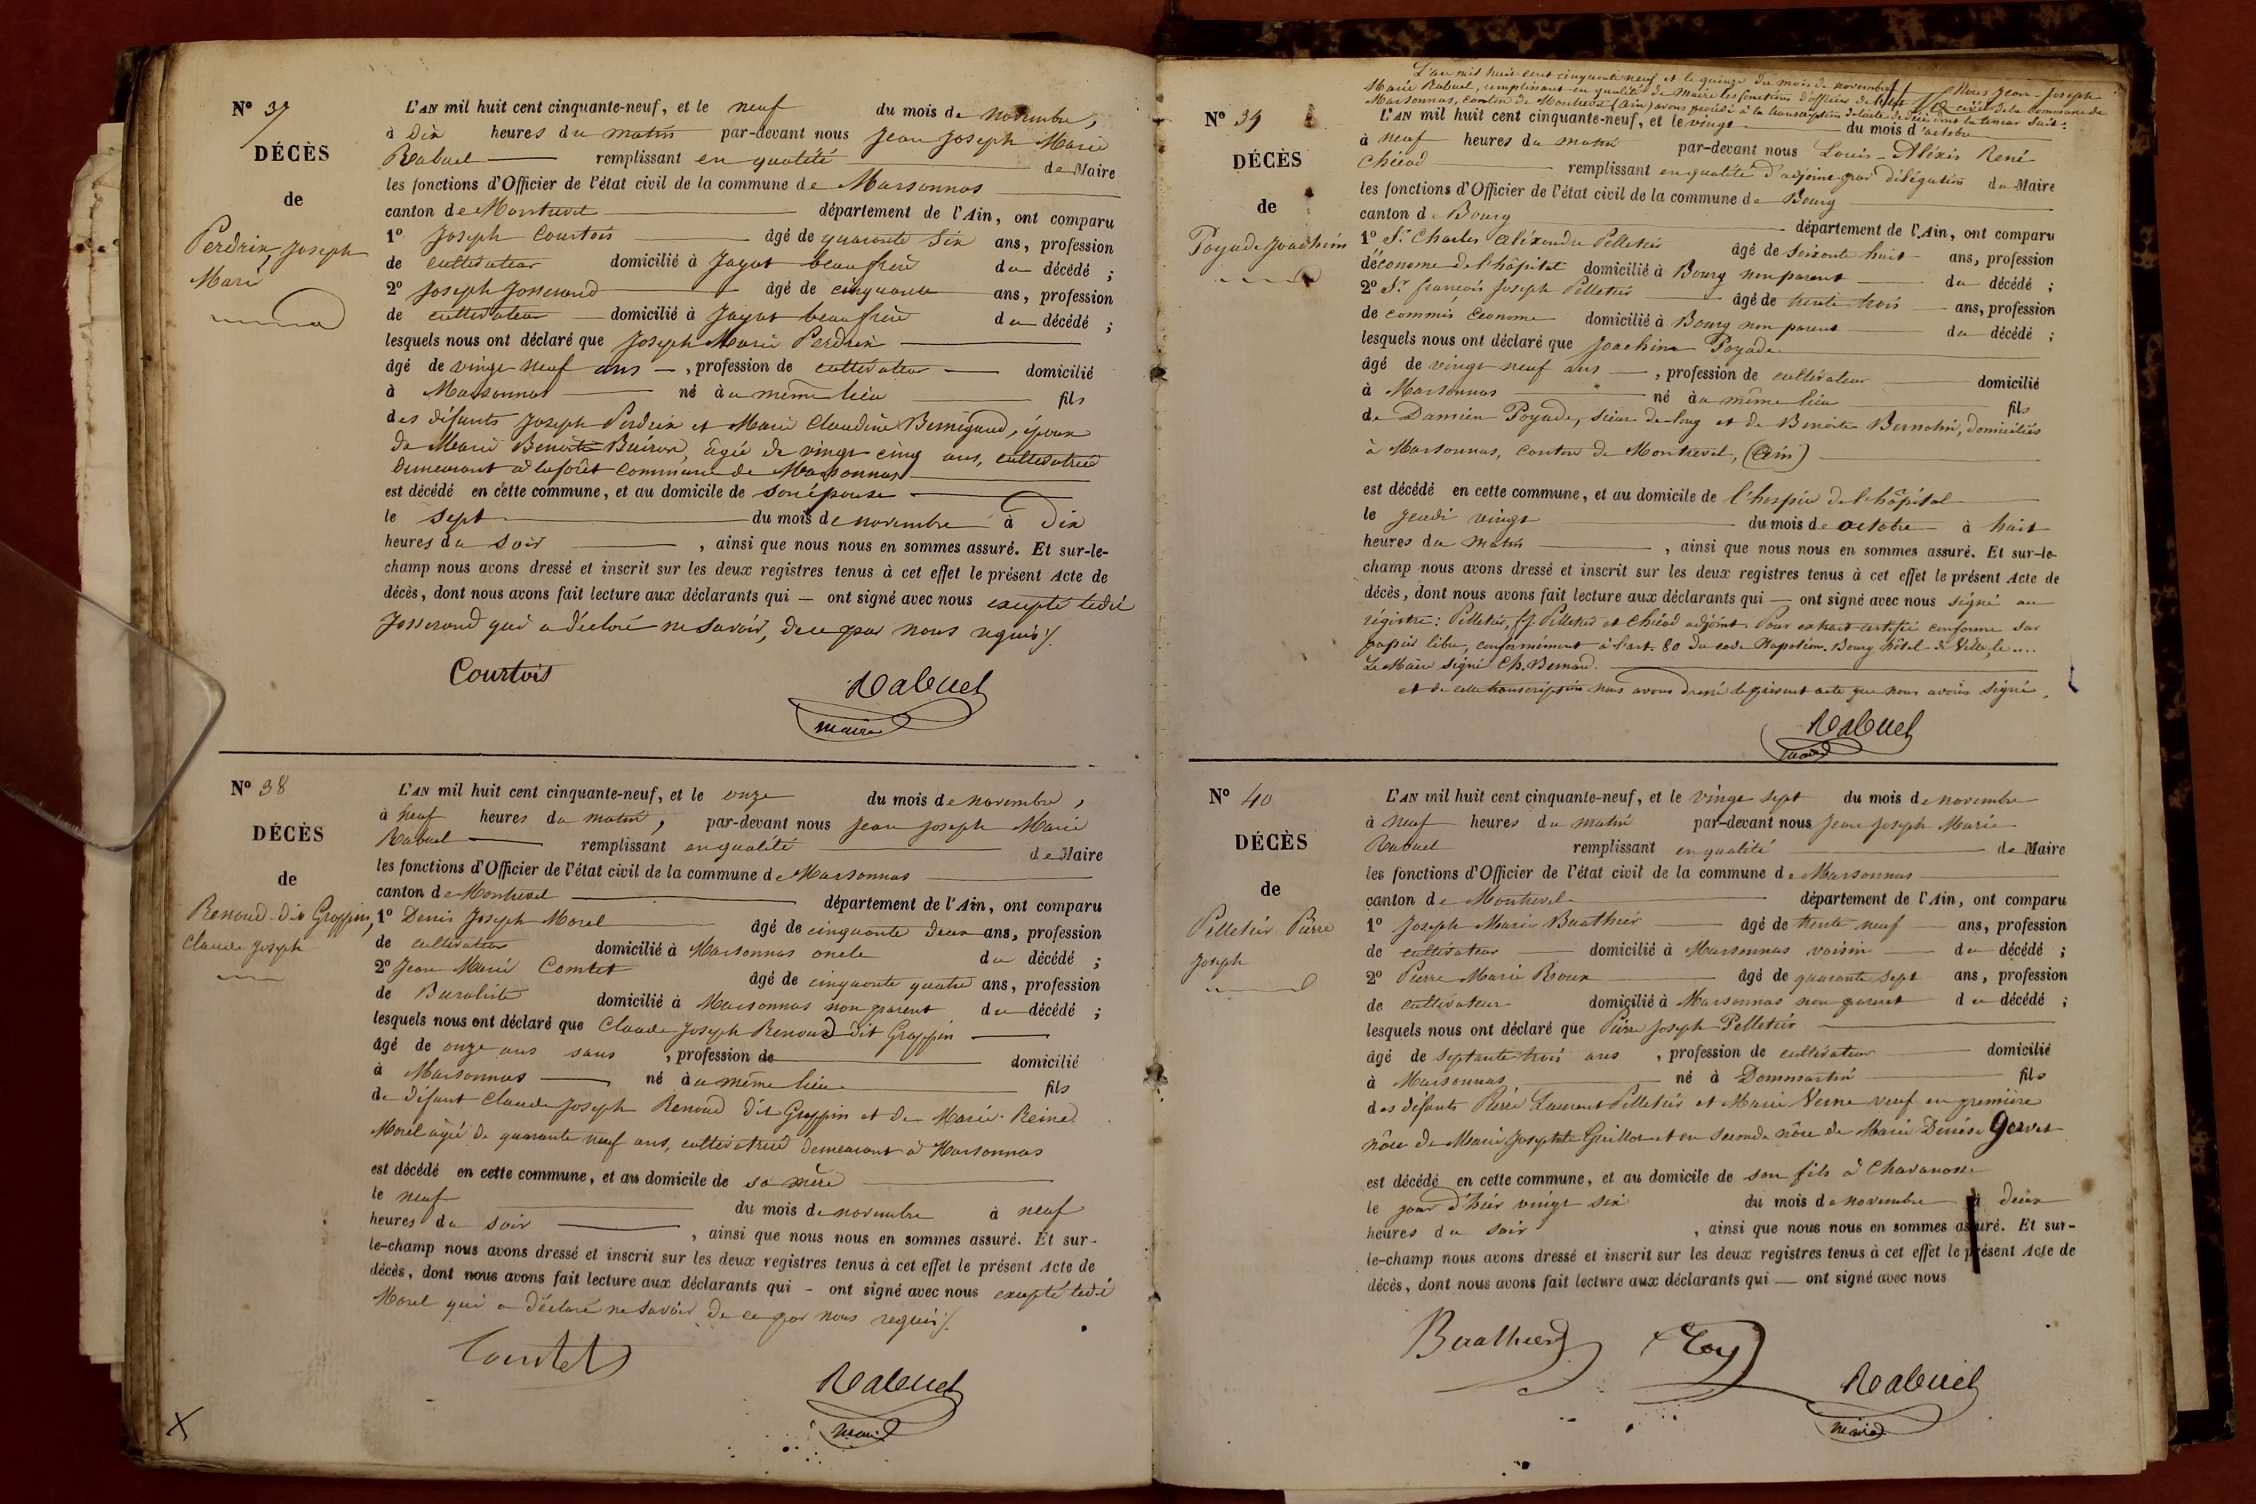 N° 37
DÉCÈS
de
Perdrix, Joseph
Marie
L'AN mil huit cent cinquante-neuf, et le neuf du mois de novembre,
à dix heures du matin par-devant nous Jean Joseph Marie
Rabuel remplissant en qualité de Maire
les fonctions d'Officier de l'état civil de la commune de Marsonnas
canton de Montrevel département de l'Ain, ont comparu
1° Joseph Courtois âgé de quarante six ans, profession
de cultivateur domicilié à Jayat beau frère du décédé ;
2° Joseph Josserand âgé de cinquante ans, profession
de cultivateur domicilié à Jayat beau frère du décédé ;
lesquels nous ont déclaré que Joseph Marie Perdrix
âgé de vingt neuf ans, profession de cultivateur domicilié
à Marsonnas né au même lieu fils
des défunts Joseph Perdrix et Marie Claudine Bernigaud, époux
de Marie Benoite Buiron, âgée de vingt cinq ans, cultivatrice
demeurant à la forêt commune de Marsonnas
est décédé en cette commune, et au domicile de son épouse
le sept du mois de novembre à dix
heures du soir, ainsi que nous nous en sommes assuré. Et sur-le-
champ nous avons dressé et inscrit sur les deux registres tenus à cet effet le présent Acte de
décès, dont nous avons fait lecture aux déclarants qui — ont signé avec nous excepté ledit
Josserand qui a déclaré ne savoir, de ce par nous requis ./.
Courtois Rabuel
maire
N° 38
DÉCÈS
de
Renoud dit Groppin,
Claude Joseph
L'AN mil huit cent cinquante-neuf, et le onze du mois de novembre,
à neuf heures du matin, par-devant nous Jean Joseph Marie
Rabuel remplissant en qualité de Maire
les fonctions d'Officier de l'état civil de la commune de Marsonnas
canton de Montrevel département de l'Ain, ont comparu
1° Denis Joseph Morel âgé de cinquante deux ans, profession
de cultivateur domicilié à Marsonnas oncle du décédé ;
2° Jean Marie Comtet âgé de cinquante quatre ans, profession
de Buraliste domicilié à Marsonnas non parent du décédé ;
lesquels nous ont déclaré que Claude Joseph Renoud dit Groppin
âgé de onze ans sans, profession de domicilié
à Marsonnas né au même lieu fils
de défunt Claude Joseph Renoud dit Groppin et de Marie Reine
Morel âgée de quarante neuf ans, cultivatrice demeurant à Marsonnas
est décédé en cette commune, et au domicile de sa mère
le neuf du mois de novembre à neuf
heures du soir, ainsi que nous nous en sommes assuré. Et sur-
le-champ nous avons dressé et inscrit sur les deux registres tenus à cet effet le présent Acte de
décès, dont nous avons fait lecture aux déclarants qui - ont signé avec nous excepté ledit
Morel qui a déclaré ne savoir de ce par nous requis ./.
Comtet Rabuel
maire
N° 39
DÉCÈS
de
Poyade Joachim
L'an mil huit cent cinquante neuf et le quinze du mois de novembre Nous Jean-Joseph
Marie Rabuel, remplissant en qualité de Maire les fonctions d'officier de l'état civil de la commune de
Marsonnas, canton de Montrevel (Ain) avons procédé à la transcription de l'acte de décès dont la teneur suit :
L'AN mil huit cent cinquante-neuf, et le vingt du mois d'octobre
à neuf heures du matin par-devant nous Louis-Aléxis René
Chicod remplissant en qualité d'adjoint par délégation du Maire
les fonctions d'Officier de l'état civil de la commune de Bourg
canton de Bourg département de l'Ain, ont comparu
1° Sr. Charles Aléxandre Pelletier âgé de soixante huit ans, profession
d'économe de l'hôpital domicilié à Bourg non parent du décédé ;
2° Sr. françois Joseph Pelletier âgé de trente trois ans, profession
de commis Econome domicilié à Bourg non parent du décédé ;
lesquels nous ont déclaré que Joachim Poyade
âgé de vingt neuf ans, profession de cultivateur domicilié
à Marsonnas né au même lieu fils
de Damien Poyade, scieur de long et de Benoite Bernolin, domiciliés
à Marsonnas, canton de Montrevel, (Ain)
est décédé en cette commune, et au domicile de l'hospice de l'hôpital
le jeudi vingt du mois de octobre à huit
heures du matin, ainsi que nous nous en sommes assuré. Et sur-le-
champ nous avons dressé et inscrit sur les deux registres tenus à cet effet le présent Acte de
décès, dont nous avons fait lecture aux déclarants qui — ont signé avec nous signé au
régistre : Pelletier, f. j. Pelletier et Chicod adjoint. Pour extrait certifié conforme sur
papier libre, conformément à l'art. 80 du code Napoléon. Bourg hôtel de Ville, le ....
Le Maire signé Ch. Bernard.
et de cette transcription nous avons dressé le présent acte que nous avons signé.
Rabuel
maire
N° 40
DÉCÈS
de
Pelletier Pierre
Joseph
L'AN mil huit cent cinquante-neuf, et le vingt sept du mois de novembre
à neuf heures du matin par-devant nous Jean Joseph Marie
Rabuel remplissant en qualité de Maire
les fonctions d'Officier de l'état civil de la commune de Marsonnas
canton de Montrevel département de l'Ain, ont comparu
1° Joseph Marie Buathier âgé de trente neuf ans, profession
de cultivateur domicilié à Marsonnas voisin du décédé ;
2° Pierre Marie Roux âgé de quarante sept ans, profession
de cultivateur domicilié à Marsonnas non parent du décédé ;
lesquels nous ont déclaré que Pierre Joseph Pelletier
âgé de septante trois ans, profession de cultivateur domicilié
à Marsonnas né à Dommartin fils
des défunts Pierre Laurent Pelletier et Marie Verne veuf en première
nôce de Marie Josephte Guillot et en seconde nôce de Marie Denise Gervet
est décédé en cette commune, et au domicile de son fils à Chavanosse
le jour d'hier vingt six du mois de novembre à deux
heures du soir, ainsi que nous nous en sommes assuré. Et sur-
le-champ nous avons dressé et inscrit sur les deux registres tenus à cet effet le présent Acte de
décès, dont nous avons fait lecture aux déclarants qui — ont signé avec nous
Buathier Rabuel
maire